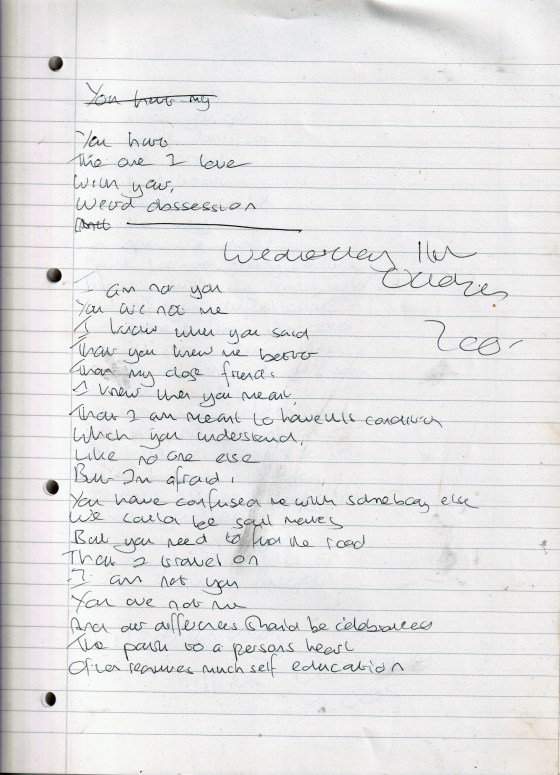 You have my
You have
The one I love
With your,
Weird obssession
Wednesday 11th
October
I am not you
You are not me
I know when you said
That you knew me better
Than my close friends
I knew when you meant,
That I am meant to have this condition
Which you understand,
Like no one else
But I'm afraid,
You have confused me with somebody else
We could be soul mates
But you need to find the road
That I travel on
I am not you
You are not me
And our differences should be celebrated
The path to a persons heart
Often requires much self education